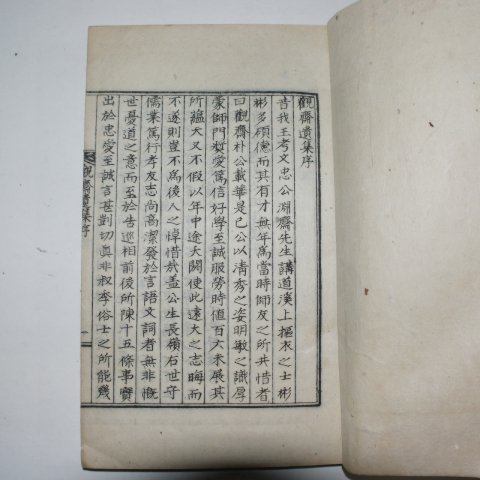 觀齋遺集序
昔我王考文忠公淵齋先生講道溪上摳衣之士彬
彬多碩德而其有才無年爲當時師友之所共惜者
曰觀齋朴公載華是已公以清秀之姿明敏之識厚
蒙師門敎愛篤信好學至誠服勞時値百六未展其
所蘊天又不假以年中途夭閼使此遠大之志晦而
不遂則豈不爲後人之悼惜哉盖公生長嶺右世守
儒業篤行孝友志尚高潔發於言語文詞者無非慨
世憂道之意而至於告巡相前後所陳十五條事實
出於忠愛至誠言甚剴切眞非叔季俗士之所能幾
觀齋遺集序
一